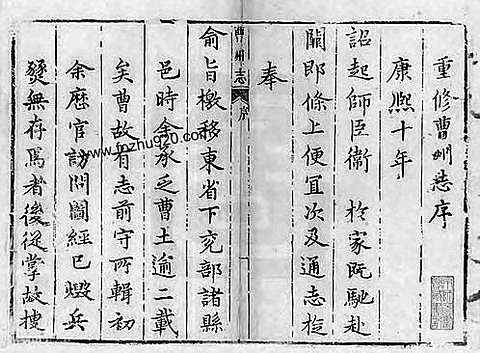 重修曹州志序
康熙十年
詔起師臣衞 於家既馳赴
闕即條上便宜次及通志旋
奉
曹州志 序
俞旨檄移東省下兖部諸縣
邑時余承乏曹土逾二載
矣曹故有志前守所輯初
余歷官訪問圖經已燬兵
燹無存焉者後從掌故搜
www.fozhu920.com